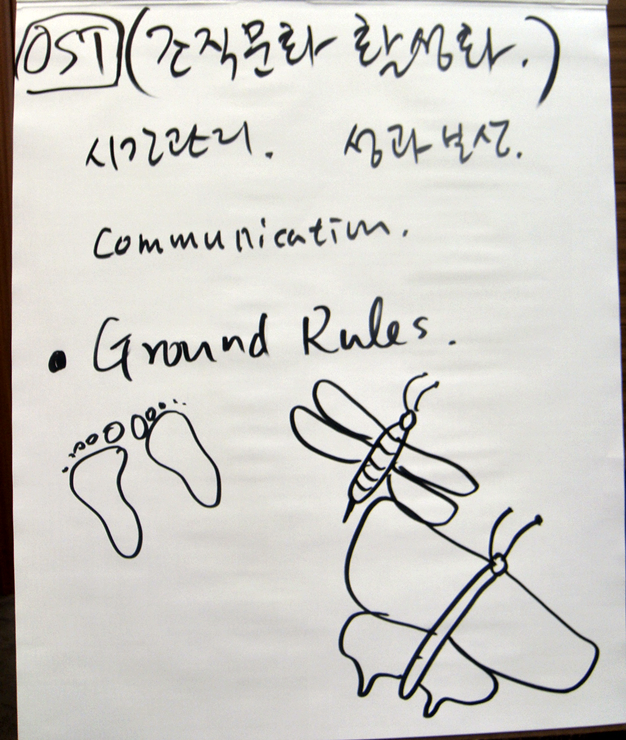 OST (조직문화 활성화.)
시간관리. 성과보상.
Communication.
• Ground Rules.